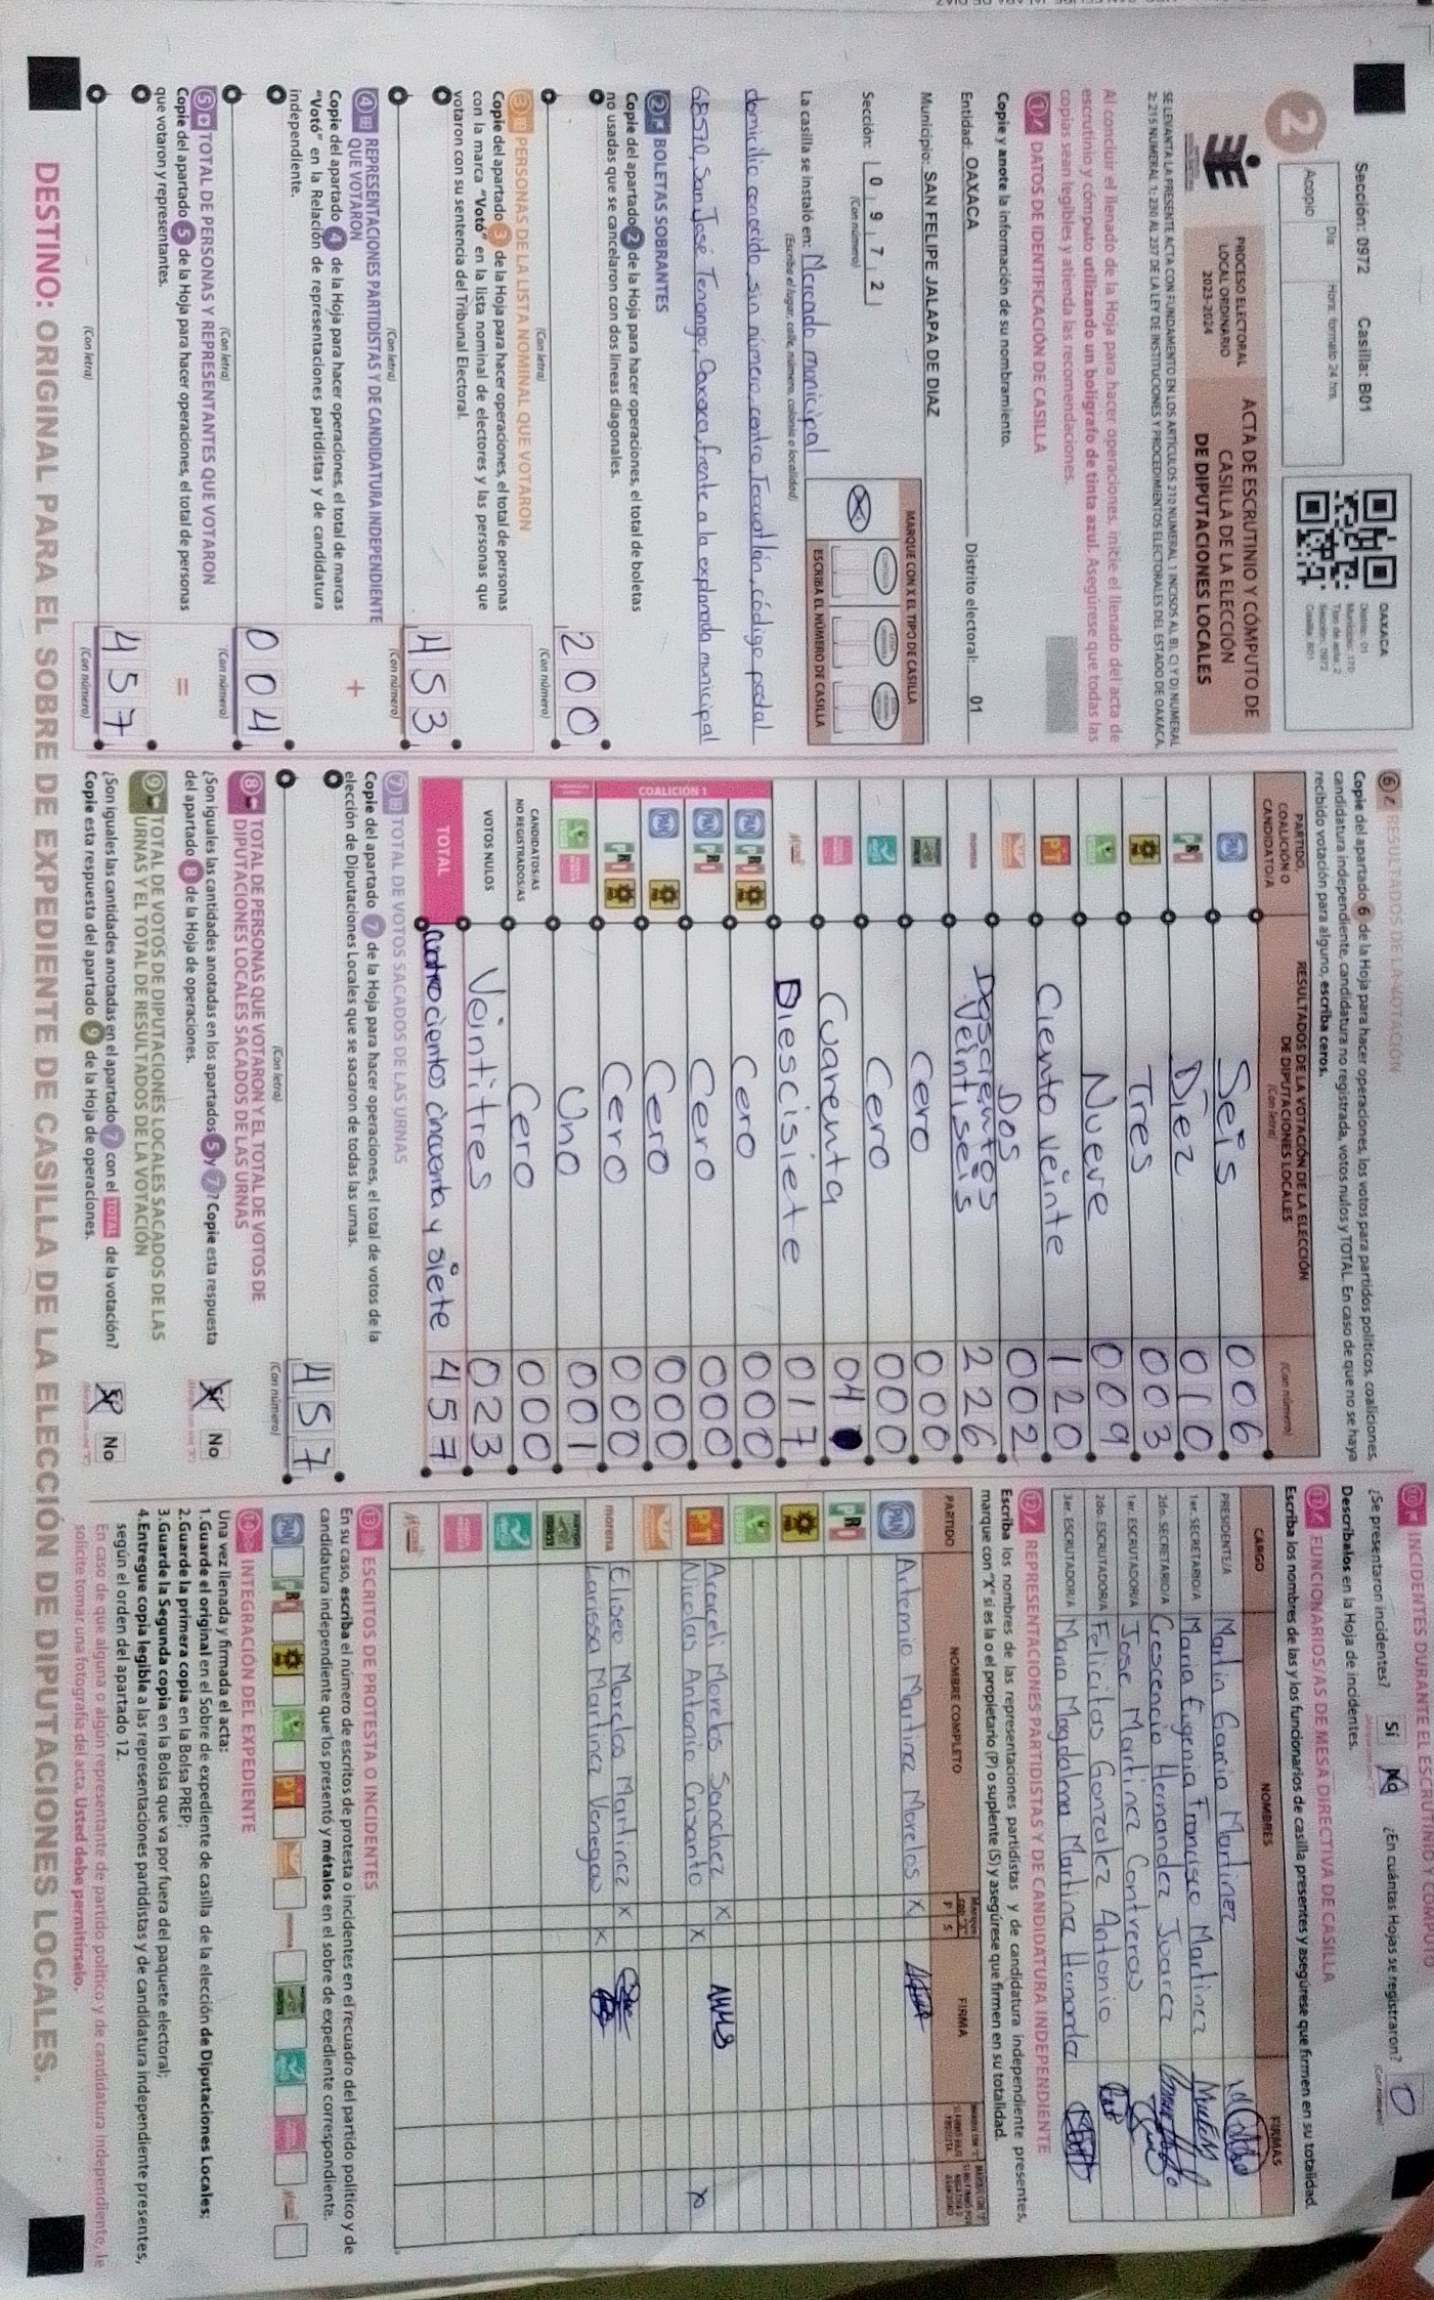 Sección: 0972 Casilla: B01
2
Acopio
Día:
Hora: formato 24 hrs.
OAXACA
Distrito: 01
Municipio: 170
Tipo de acta: 2
Sección: 0972
Casilla: B01
PROCESO ELECTORAL
LOCAL ORDINARIO
2023-2024
ACTA DE ESCRUTINIO Y CÓMPUTO DE
CASILLA DE LA ELECCIÓN
DE DIPUTACIONES LOCALES
SE LEVANTA LA PRESENTE ACTA CON FUNDAMENTO EN LOS ARTÍCULOS 210 NUMERAL 1 INCISOS A), B), C) Y D) NUMERAL
2; 215 NUMERAL 1; 230 AL 237 DE LA LEY DE INSTITUCIONES Y PROCEDIMIENTOS ELECTORALES DEL ESTADO DE OAXACA.
Al concluir el llenado de la Hoja para hacer operaciones, inicie el llenado del acta de
escrutinio y cómputo utilizando un bolígrafo de tinta azul. Asegúrese que todas las
copias sean legibles y atienda las recomendaciones.
1 DATOS DE IDENTIFICACIÓN DE CASILLA
Copie y anote la información de su nombramiento.
Entidad: OAXACA Distrito electoral: 01
Municipio: SAN FELIPE JALAPA DE DIAZ
Sección: 0 9 7 2
(Con número)
MARQUE CON X EL TIPO DE CASILLA
ESCRIBA EL NÚMERO DE CASILLA
La casilla se instaló en: Mercado municipal
(Escriba el lugar, calle, número, colonia o localidad)
domicilio conocido, sin número, centro, código postal
68570, San José Tenango, Oaxaca, frente a la explanada municipal
2 BOLETAS SOBRANTES
Copie del apartado 2 de la Hoja para hacer operaciones, el total de boletas
no usadas que se cancelaron con dos líneas diagonales.
200
(Con letra) (Con número)
3 PERSONAS DE LA LISTA NOMINAL QUE VOTARON
Copie del apartado 3 de la Hoja para hacer operaciones, el total de personas
con la marca "Votó" en la lista nominal de electores y las personas que
votaron con su sentencia del Tribunal Electoral.
453
(Con letra) (Con número)
4 REPRESENTACIONES PARTIDISTAS Y DE CANDIDATURA INDEPENDIENTE
QUE VOTARON
+
Copie del apartado 4 de la Hoja para hacer operaciones, el total de marcas
"Votó" en la Relación de representaciones partidistas y de candidatura
independiente.
004
(Con letra) (Con número)
5 TOTAL DE PERSONAS Y REPRESENTANTES QUE VOTARON
=
Copie del apartado 5 de la Hoja para hacer operaciones, el total de personas
que votaron y representantes.
457
(Con letra) (Con número)
6 RESULTADOS DE LA VOTACIÓN
Copie del apartado 6 de la Hoja para hacer operaciones, los votos para partidos políticos, coaliciones,
candidatura independiente, candidatura no registrada, votos nulos y TOTAL. En caso de que no se haya
recibido votación para alguno, escriba ceros.
PARTIDO, COALICIÓN O CANDIDATO/A
RESULTADOS DE LA VOTACIÓN DE LA ELECCIÓN DE DIPUTACIONES LOCALES
(Con letra) (Con número)
PAN Seis 006
PRI Diez 010
PRD Tres 003
VERDE Nueve 009
PT Ciento veinte 120
Dos 002
morena Doscientos veintiseis 226
Cero 000
Cero 000
Cuarenta 04
Diescisiete 017
COALICIÓN 1
PAN PRI PRD Cero 000
PAN PRI Cero 000
PAN PRD Cero 000
PRI PRD Cero 000
VERDE Uno 001
CANDIDATOS/AS NO REGISTRADOS/AS Cero 000
VOTOS NULOS Veintitres 023
TOTAL Cuatrocientos cincuenta y siete 457
7 TOTAL DE VOTOS SACADOS DE LAS URNAS
Copie del apartado 7 de la Hoja para hacer operaciones, el total de votos de la
elección de Diputaciones Locales que se sacaron de todas las urnas.
457
(Con letra) (Con número)
8 TOTAL DE PERSONAS QUE VOTARON Y EL TOTAL DE VOTOS DE
DIPUTACIONES LOCALES SACADOS DE LAS URNAS
¿Son iguales las cantidades anotadas en los apartados 5 y 7? Copie esta respuesta
del apartado 8 de la Hoja de operaciones.
No
9 TOTAL DE VOTOS DE DIPUTACIONES LOCALES SACADOS DE LAS
URNAS Y EL TOTAL DE RESULTADOS DE LA VOTACIÓN
¿Son iguales las cantidades anotadas en el apartado 7 con el TOTAL de la votación?
Copie esta respuesta del apartado 9 de la Hoja de operaciones.
No
10 INCIDENTES DURANTE EL ESCRUTINIO Y CÓMPUTO
¿Se presentaron incidentes? Sí No ¿En cuántas Hojas se registraron? 0
(Con número)
Descríbalos en la Hoja de incidentes.
11 FUNCIONARIOS/AS DE MESA DIRECTIVA DE CASILLA
Escriba los nombres de las y los funcionarios de casilla presentes y asegúrese que firmen en su totalidad.
CARGO NOMBRES FIRMAS
PRESIDENTE/A Martin Garcia Martinez
1er. SECRETARIO/A Maria Eugenia Francisco Martinez
2do. SECRETARIO/A Crescencio Hernandez Juarez
1er. ESCRUTADOR/A Jose Martinez Contreras
2do. ESCRUTADOR/A Felicitas Gonzalez Antonio
3er. ESCRUTADOR/A Maria Magdalena Martina Hernandez
12 REPRESENTACIONES PARTIDISTAS Y DE CANDIDATURA INDEPENDIENTE
Escriba los nombres de las representaciones partidistas y de candidatura independiente presentes,
marque con "X" si es la o el propietario (P) o suplente (S) y asegúrese que firmen en su totalidad.
PARTIDO NOMBRE COMPLETO P S FIRMA
PAN Artemio Martinez Morelos X
PRI
PRD
VERDE
PT Araceli Morelos Sanchez X
Nicolas Antonio Crisanto X X
morena Eliseo Morelos Martinez X
Larissa Martinez Venegas X
13 ESCRITOS DE PROTESTA O INCIDENTES
En su caso, escriba el número de escritos de protesta o incidentes en el recuadro del partido político y de
candidatura independiente que los presentó y métalos en el sobre de expediente correspondiente.
PAN PRI PRD VERDE PT morena
14 INTEGRACIÓN DEL EXPEDIENTE
Una vez llenada y firmada el acta:
1.Guarde el original en el Sobre de expediente de casilla de la elección de Diputaciones Locales;
2.Guarde la primera copia en la Bolsa PREP;
3.Guarde la Segunda copia en la Bolsa que va por fuera del paquete electoral;
4.Entregue copia legible a las representaciones partidistas y de candidatura independiente presentes,
según el orden del apartado 12.
En caso de que alguna o algún representante de partido político y de candidatura independiente, le
solicite tomar una fotografía del acta, Usted debe permitírselo.
DESTINO: ORIGINAL PARA EL SOBRE DE EXPEDIENTE DE CASILLA DE LA ELECCIÓN DE DIPUTACIONES LOCALES.